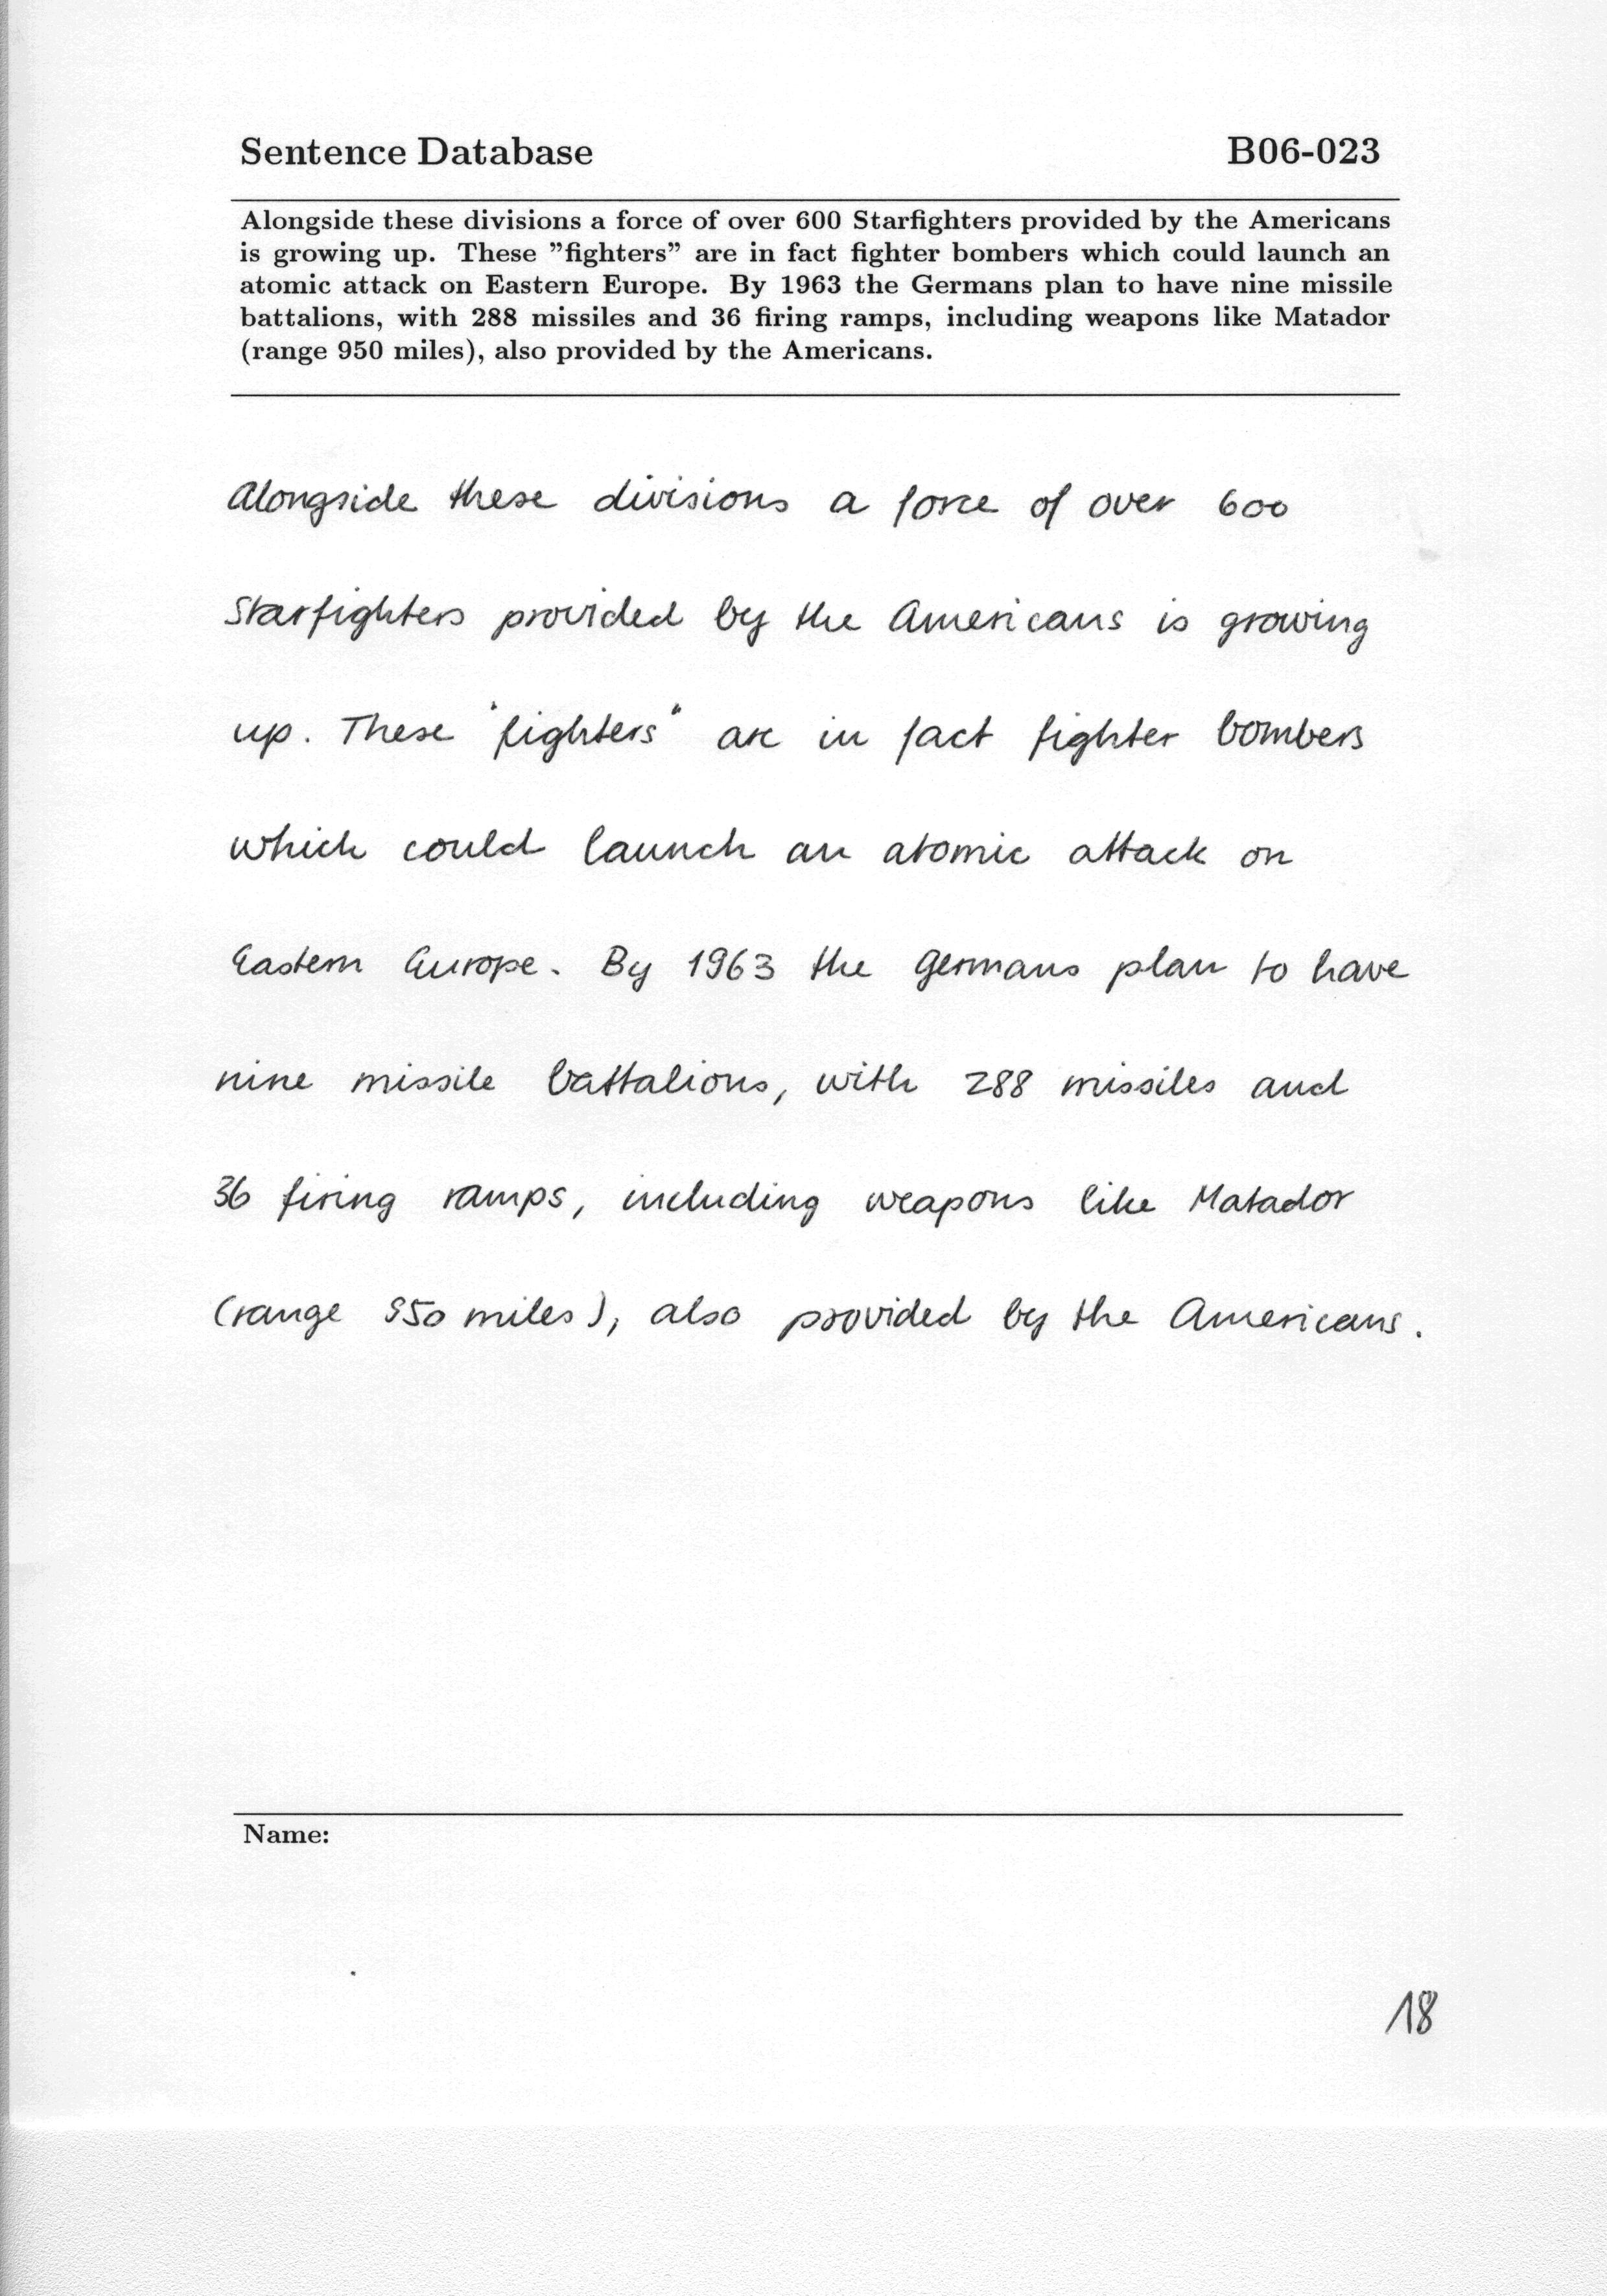 Sentence Database B06-023
Alongside these divisions a force of over 600 Starfighters provided by the Americans
is growing up. These "fighters" are in fact fighter bombers which could launch an
atomic attack on Eastern Europe. By 1963 the Germans plan to have nine missile
battalions, with 288 missiles and 36 firing ramps, including weapons like Matador
(range 950 miles), also provided by the Americans.
Alongside these divisions a force of over 600
Starfighters provided by the Americans is growing
up. These "fighters" are in fact fighter bombers
which could launch an atomic attack on
Eastern Europe. By 1963 the Germans plan to have
nine missile battalions, with 288 missiles and
36 firing ramps, including weapons like Matador
(range 950 miles), also provided by the Americans.
Name:
18